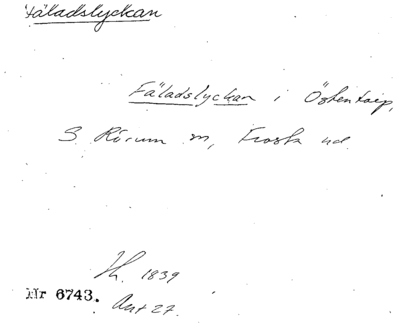 Fäladslyckan
Fäladslyckan i Östentorp,
S Rörum sn, Frosta hd.
Th. 1839
Nr 6743.
Ant 27.